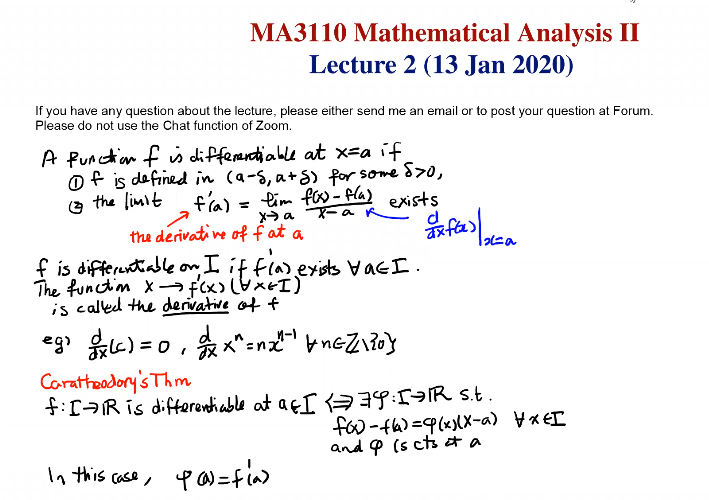 MA3110 Mathematical Analysis II
Lecture 2 (13 Jan 2020)
If you have any question about the lecture, please either send me an email or to post your question at Forum.
Please do not use the Chat function of Zoom.
A function f is differentiable at x=a if
① f is defined in (a-δ, a+δ) for some δ>0,
② the limit f'(a) = lim_{x→a} (f(x)-f(a))/(x-a) exists
the derivative of f at a
d/dx f(x)|_{x=a}
f is differentiable on I if f'(a) exists ∀a∈I.
The function x → f'(x) (∀x∈I)
is called the derivative of f
eg) d/dx (c) = 0, d/dx x^n = nx^{n-1} ∀n∈Z\{0}
Caratheodory's Thm
f: I→R is differentiable at a∈I ⇔ ∃φ: I→R s.t.
f(x)-f(a)=φ(x)(x-a) ∀x∈I
and φ is cts at a
In this case, φ(a)=f'(a)